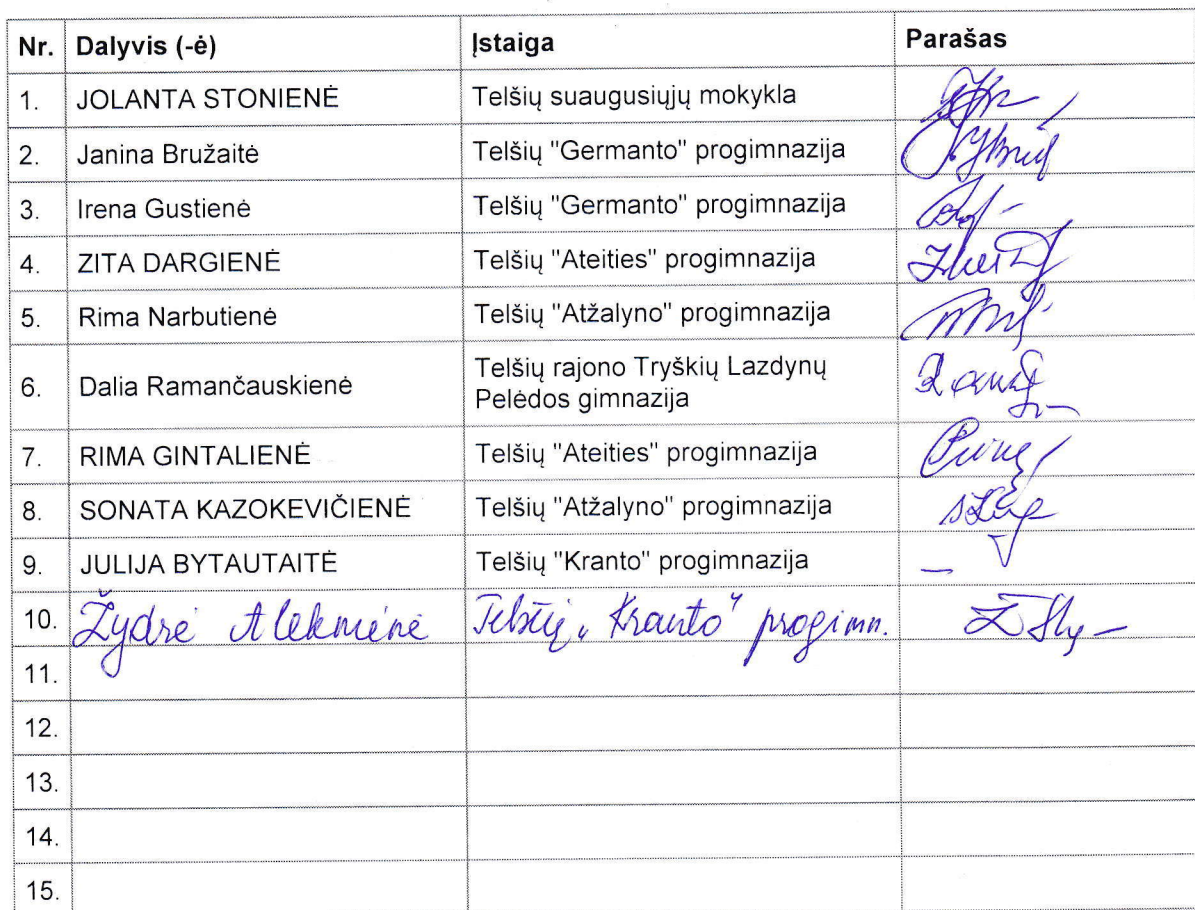 Nr. Dalyvis (-ė) Įstaiga Parašas
1. JOLANTA STONIENĖ Telšių suaugusiųjų mokykla
2. Janina Bružaitė Telšių "Germanto" progimnazija
3. Irena Gustienė Telšių "Germanto" progimnazija
4. ZITA DARGIENĖ Telšių "Ateities" progimnazija
5. Rima Narbutienė Telšių "Atžalyno" progimnazija
6. Dalia Ramančauskienė Telšių rajono Tryškių Lazdynų
Pelėdos gimnazija
7. RIMA GINTALIENĖ Telšių "Ateities" progimnazija
8. SONATA KAZOKEVIČIENĖ Telšių "Atžalyno" progimnazija
9. JULIJA BYTAUTAITĖ Telšių "Kranto" progimnazija
10. Žydrė Telšių „Kranto" progimn.
11.
12.
13.
14.
15.